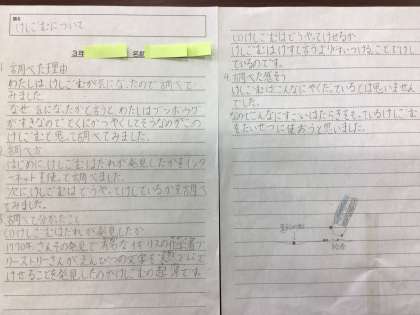 題名
けしごむについて
3年
名前
1 調べた理由
わたしは、けしごむが気になったので調べて
みました。
なぜ気になったかと言うと、わたしはブンボウグ
がすきなのでとくにかつやくしてそうなのがこの
けしごむと思って調べてみました。
調べ方
はじめに、けしごむはだれが発見したかをインタ
ーネットを使って調べました。
次にけしごむはどうやってけしているかを調べ
てみました。
3 調べて分かったこと
(1)けしごむはだれが発見したか
1770年、さん その発見で有名なイギリスの化学者プ
リーストリーさんがえんぴつの文字を
けせることを発見したのがけしごむの起源です。
(2)けしごむはどうやってけせるか
けしごむはけすと言うよりすいつけることでけし
ているのです。
4 調べた感そう
けしごむはこんなにやくだっているとは思いませんで
した。
なのでこんなにすごいはたらきをもっているけしごむ
をたいせつに使おうと思いました。